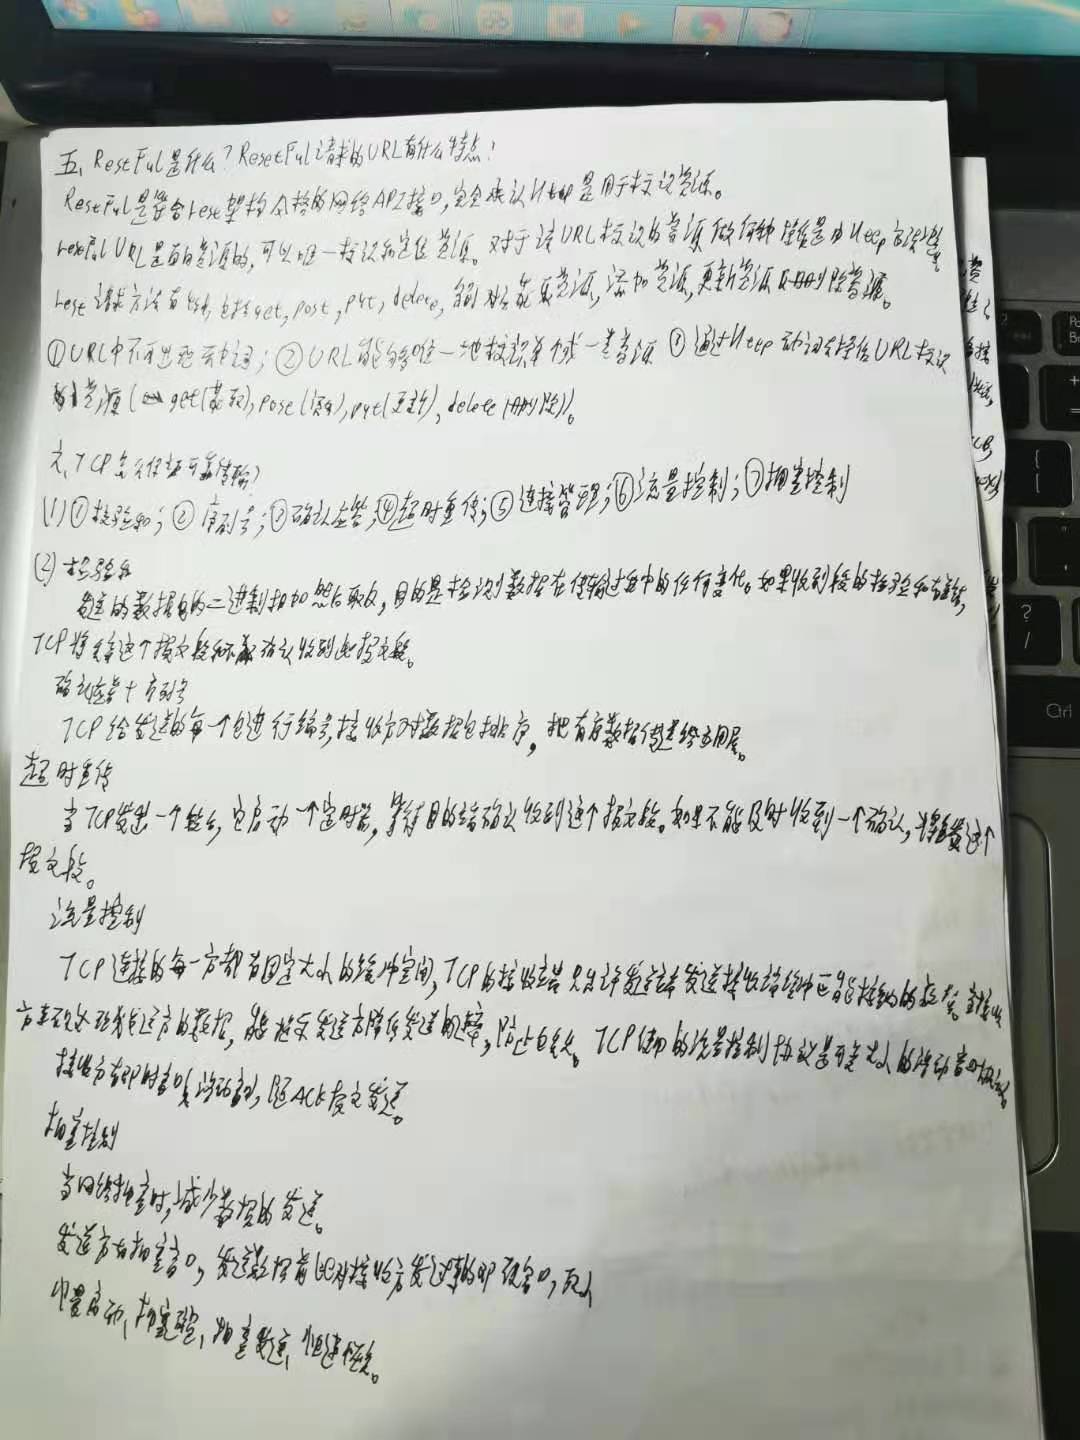 五、RestFul是什么？ResetFul请求的URL有什么特点？
RestFul是符合rest架构风格的网络API接口，完全承认Http是用于标识资源。
restFul URL是面向资源的，可以唯一标识和定位资源。对于该URL标识的资源做何种操作是由Http方法决定。
rest请求方法有4种，包括get，post，put，delete，分别对应获取资源，添加资源，更新资源及删除资源。
①URL中不可出现动词；②URL能够唯一地标识单个或一类资源 ③通过Http动词操作URL标识
的资源（get(获取)，post()，put(更新)，delete(删除)）。
六、TCP怎么保证可靠传输？
(1)①校验和；②序列号；③确认应答；④超时重传；⑤连接管理；⑥流量控制；⑦拥塞控制
(2)校验和
发送的数据包的二进制相加然后取反，目的是检测数据在传输过程中的任何变化。如果收到段的检验和有差错，
TCP将丢弃这个报文段和不确认收到此报文段。
确认应答+序列号
TCP给发送的每一个包进行编号，接收方对数据包排序，把有序数据传送给应用层。
超时重传
当TCP发出一个段后，它启动一个定时器，等待目的端确认收到这个报文段。如果不能及时收到一个确认，将重发这个
报文段。
流量控制
TCP连接的每一方都有固定大小的缓冲空间，TCP的接收端只允许发送端发送接收端缓冲区能接纳的数据。当接收
方来不及处理发送方的数据，能提示发送方降低发送的速率，防止包丢失。TCP使用的流量控制协议是可变大小的滑动窗口协议。
接收方有即时窗口(滑动窗口)，随ACK报文发送。
拥塞控制
当网络拥塞时，减少数据的发送。
发送方有拥塞窗口，发送数据前比对接收方发过来的即时窗口，取小
慢启动，拥塞避免，拥塞发送，快速恢复。